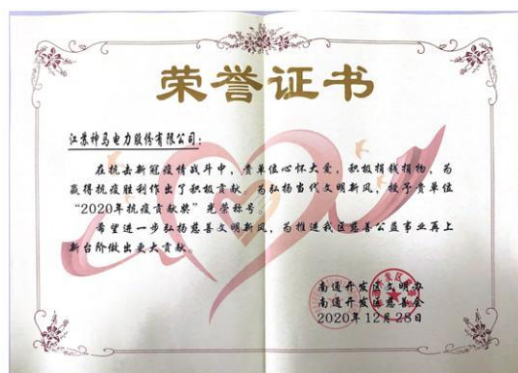 荣誉证书
江苏神马电力股份有限公司：
在抗击新冠疫情战斗中，贵单位心怀大爱，积极捐钱捐物，为
赢得抗疫胜利作出了积极贡献。为弘扬当代文明新风，授予贵单位
“2020年抗疫贡献奖”光荣称号。
希望进一步弘扬慈善文明新风，为推进我区慈善公益事业再上
新台阶做出更大贡献。
南通开发区文明办
南通开发区慈善会
2020年12月28日